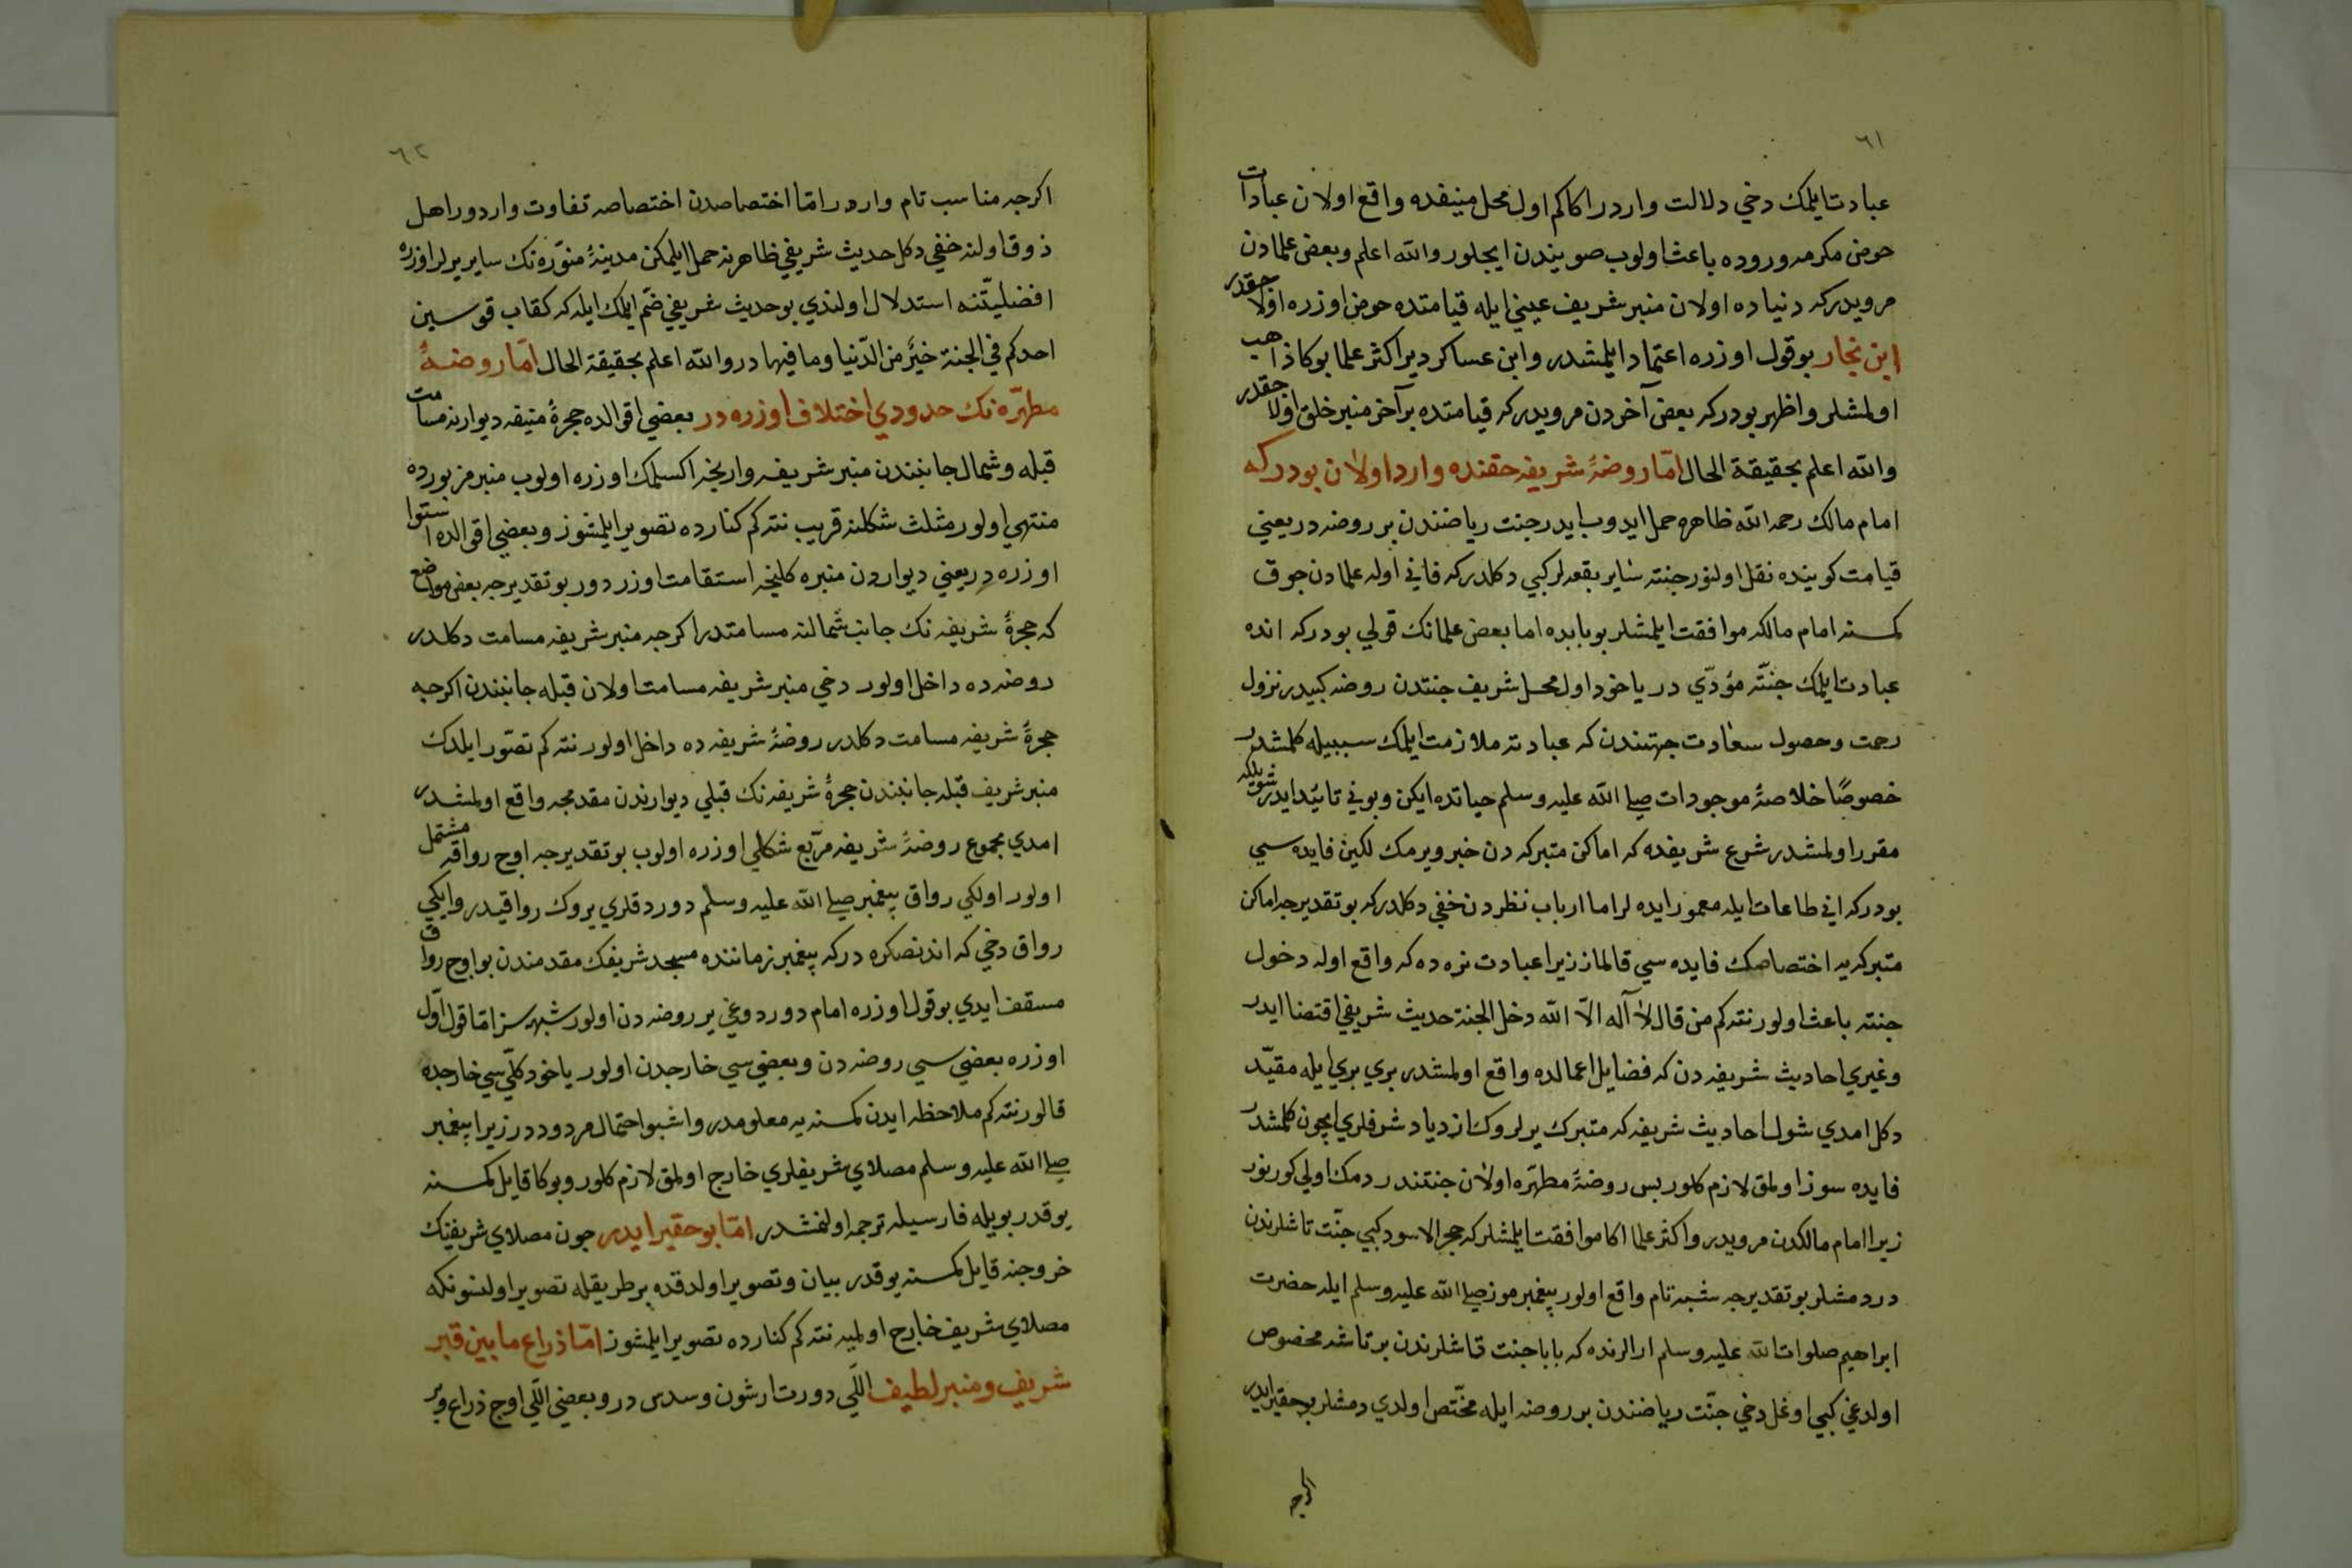 ٦١
عبادت ايلمك دخي دلالت واردر اكاكم اول محل منيفده واقع اولان عبادات
حوض مكرمه وروده باعث اولوب صويندن ايچلور والله اعلم وبعض علمادن
مرويدركه دنياده اولان منبر شريف عيني ايله قيامتده حوض اوزره اولاجقدر
ابن نجار بو قول اوزره اعتماد ايلمشدر وابن عساكر دير اكثر علما بوكا ذاهب
اولمشلر واظهر بودركه بعض آخردن مرويدركه قيامتده بر آخر منبر خلق اولاجقدر
والله اعلم بحقيقة الحال امّا روضۀ شريفه حقنده وارد اولان بودركه
امام مالك رحمه الله ظاهره حمل ايدوب ايدر جنت رياضندن بر روضه در يعني
قيامت كوننده نقل اولنور جنته ساير بقعه لر كبي دكلدركه فاني اوله علمادن جوق
كمسنه امام مالكه موافقت ايلمشلر بو بابده اما بعض علمانك قولي بودركه انده
عبادت ايلمك جنّته مؤدّي در ياخود اول محل شريف جنتدن روضه كبيدر نزول
رحمت وحصول سعادت جهتندن كه عبادته ملازمت ايلمك سببيله كلمشدر
خصوصًا خلاصۀ موجودات صلى الله عليه وسلم حياتده ايكن وبوني تائيد ايدر شويله كه
مقرر اولمشدر شرع شريفده كه اماكن متبركه دن خبر ويرمك لكين فايده سي
بودركه اني طاعات ايله معمور ايده لر اما ارباب نظردن خفي دكلدركه بو تقديرجه اماكن
متبركه يه اختصاصك فايده سي قالماز زيرا عبادت نره ده كه واقع اوله دخول
جنته باعث اولور نته كم من قال لا آله الاّ الله دخل الجنة حديث شريفي اقتضا ايدر
وغيري احاديث شريفه دن كه فضايل اعمالده واقع اولمشدر بري بري ايله مقيّد
دكل امدي شول احاديث شريفه كه متبرك يرلروك ازدياد شرفلري ايچون كلمشدر
فايده سوز اولمق لازم كلور بس روضۀ مطهّره اولان جنتندر دمك اولي كورنور
زيرا امام مالكدن مرويدر واكثر علما اكا موافقت ايلمشلركه حجر الاسود كبي جنّت تاشلرندن
در دمشلر بو تقديرجه شبه تام واقع اولور پيغمبرموز صلى الله عليه وسلم ايله حضرت
ابراهيم صلوات الله عليه وسلم ارالرنده كه بابا جنت تاشلرندن بر تاشه مخصوص
اولدغي كبي اوغل دخي جنّت رياضندن بر روضه ايله مختّص اولدي دمشلر بو حقير ايدر
اكرجه
٦٢
اكرجه مناسب تام واردر امّا اختصاصدن اختصاصه تفاوت واردور اهل
ذوق اولنه خفي دكل حديث شريفي ظاهرنه حمل ايلمكن مدينۀ منوّره نك ساير يرلر اوزره
افضليّتنه استدلال اولندي بو حديث شريفي ضم ايلمك ايله كه كقاب قوسين
احدكم في الجنة خيرٌ من الدّنيا وما فيها در والله اعلم بحقيقة الحال امّا روضۀ
مطهّره نك حدودي اختلاف اوزره در بعضي اقوالده حجرۀ منيفه ديوارنه مسامت
قبله وشمال جانبندن منبر شريفه وارنجه اكسلمك اوزره اولوب منبر مزبورده
منتهي اولور مثلث شكلنه قريب نته كم كنارده تصوير ايلمشوز وبعضي اقوالده استوا
اوزره در يعني ديواردن منبره كلنجه استقامت اوزردور بو تقديرجه بعض مواضع
كه حجرۀ شريفه نك جانب شمالنه مسامتدر اكرجه منبر شريفه مسامت دكلدر
روضه ده داخل اولور دخي منبر شريفه مسامت اولان قبله جانبندن اكرجه
حجرۀ شريفه مسامت دكلدر روضۀ شريفه ده داخل اولور نته كم تصوّر ايلدك
منبر شريف قبله جانبندن حجرۀ شريفه نك قبلي ديوارندن مقدمجه واقع اولمشدر
امدي مجموع روضۀ شريفه مربّع شكلي اوزره اولوب بو تقديرجه اوج رواقه مشتمل
اولور اولكي رواق پيغمبر صلى الله عليه وسلم دوردقلري يروك رواقيدر وايكي
رواق دخي كه اندنصكره دركه پيغمبر زماننده مسجد شريفك مقدمندن بو اوج رواق
مسقف ايدي بو قول اوزره امام دوردوغي ير روضه دن اولور شبهه سز امّا قول اوّل
اوزره بعضي سي روضه دن وبعضي سي خارجدن اولور ياخود كلّي سي خارجده
قالور نته كم ملاحظه ايدن كمسنه يه معلومدر واشبو احتمال مردوددر زيرا پيغمبر
صلى الله عليه وسلم مصلاي شريفلري خارج اولمق لازم كلور وبوكا قايل كمسنه
يوقدر بويله فارسيله ترجمه اولنمشدر امّا بو حقير ايدر جون مصلاي شريفنك
خروجنه قايل كمسنه يوقدر بيان وتصوير اولدقده بر طريقله تصوير اولنسونكه
مصلاي شريف خارج اولميه نته كم كنارده تصوير ايلمشوز امّا ذراع ما بين قبر
شريف ومنبر لطيف اللّي دورت ارشون وسدس در وبعضي اللّي اوج ذراع وبر